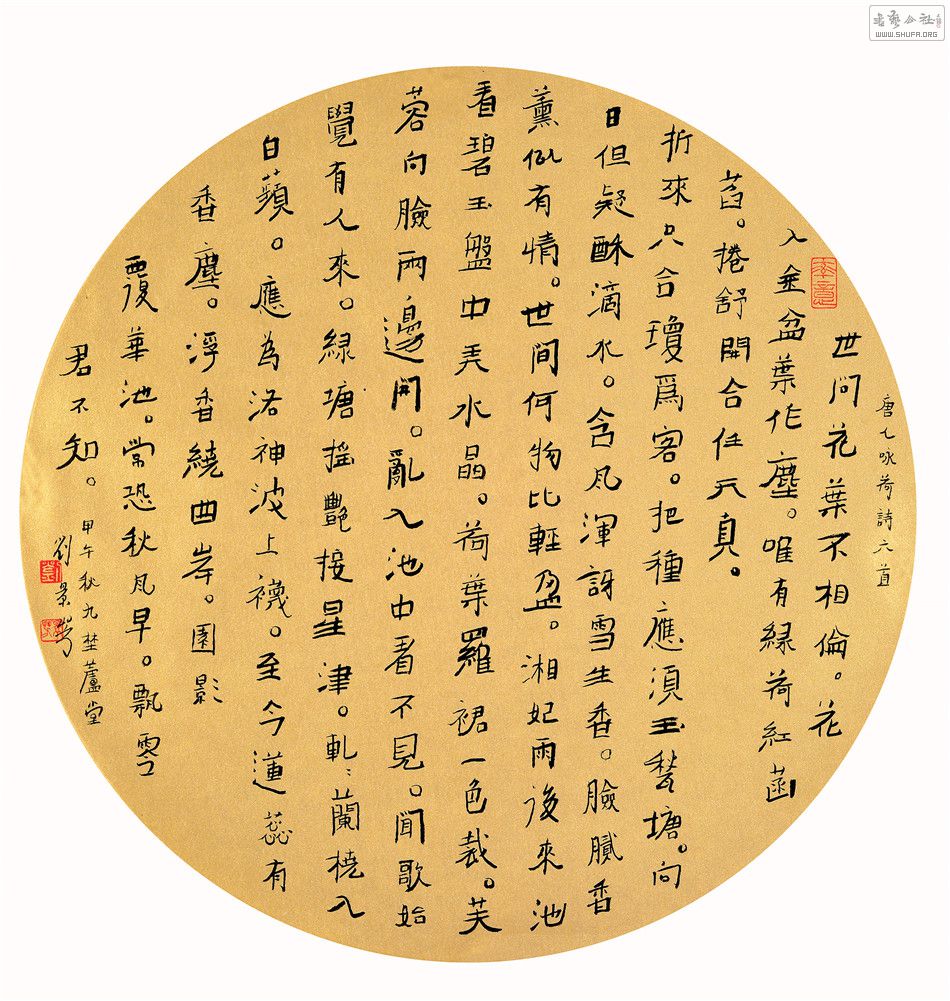 書藝公社
WWW.SHUFA.ORG
唐人咏荷詩六首
世问花葉不相倫。花
入金盆葉作塵。唯有緑荷紅菡
萏。捲舒開合任天真。
折來只合瓊爲客。把種應須玉甃塘。向
日但疑酥滴水。含风渾訝雪生香。臉膩香
薰似有情。世間何物比輕盈。湘妃雨後來池
看碧玉盤中弄水晶。荷葉羅裙一色裁。芙
蓉向臉兩邊開。亂入池中看不見。聞歌始
覺有人來。緑塘摇艷接星津。軋〻蘭橈入
白蘋。應為洛神波上襪。至今蓮蕊有
香塵。浮香繞曲岸。圓影
覆華池。常恐秋风早。飄零
君不知。
甲午秋九埜蘆堂
劉景